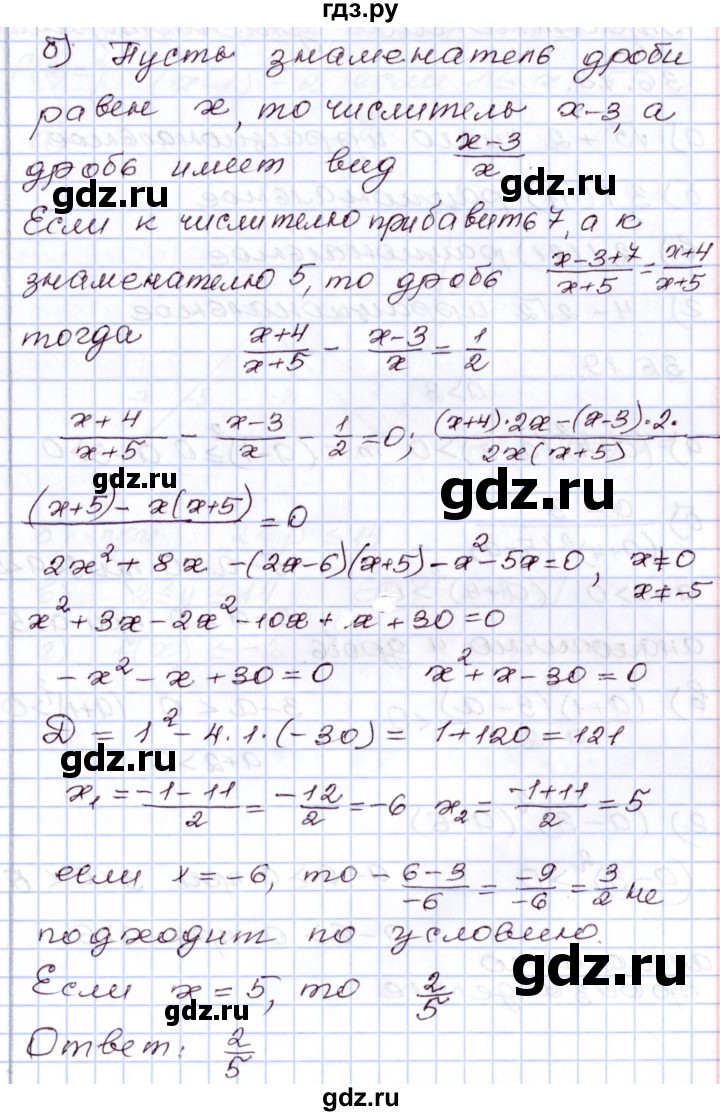 гдз.ру
б) Пусть знаменатель дроби
равен x, то числитель x-3, а
дробь имеет вид (x-3)/x.
gdz.ru gdz.ru
Если к числителю прибавить 7, а к
знаменателю 5, то дробь (x-3+7)/(x+5) = (x+4)/(x+5)
тогда (x+4)/(x+5) - (x-3)/x = 1/2
(x+4)/(x+5) - (x-3)/x - 1/2 = 0; (x+4)·2x-(x-3)·2· / 2x(x+5)
gdz.ru gdz.ru
(x+5)- x(x+5) = 0
2x²+8x-(2x-6)(x+5)-x²-5x=0, x≠0
x≠-5
x²+3x-2x²-10x+ x+30=0
-x²-x+30=0 x²+x-30=0
D = 1²-4·1·(-30) = 1+120=121
gdz.ru gdz.ru
x₁ = (-1-11)/2 = -12/2 = -6 x₂ = (-1+11)/2 = 5
если x=-6, то (-6-3)/-6 = -9/-6 = 3/2 не
подходит по условию.
gdz.ru
Если x=5, то 2/5
gdz.ru
Ответ: 2/5
gdz.ru